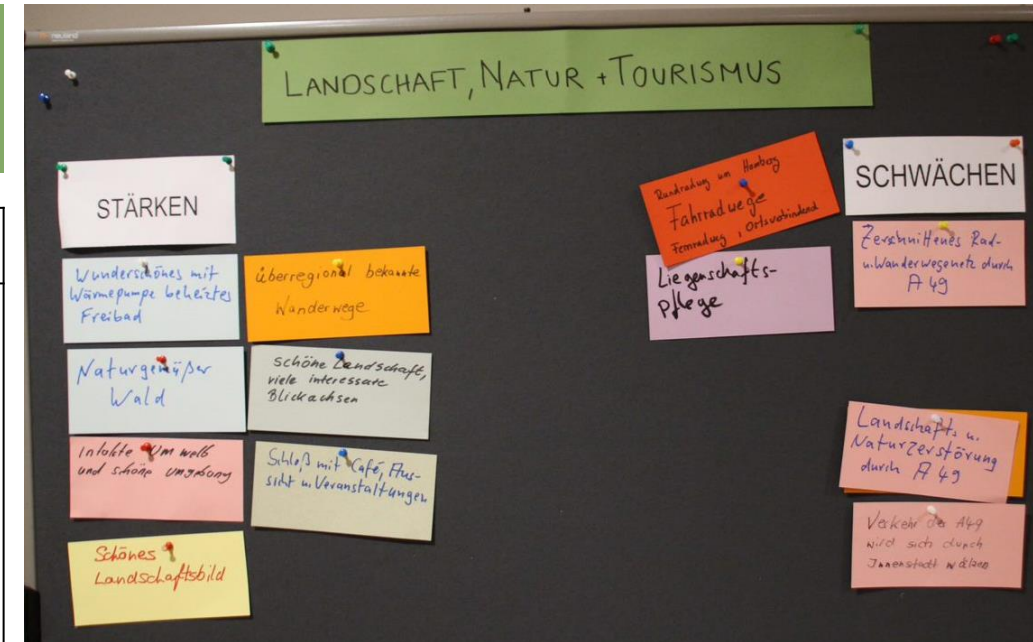 neuland
LANDSCHAFT, NATUR + TOURISMUS
STÄRKEN
Wunderschönes mit
Wärmepumpe beheiztes
Freibad
Naturgemäßer
Wald
Intakte Umwelt
und schöne Umgebung
Schönes
Landschaftsbild
überregional bekannte
Wanderwege
schöne Landschaft,
viele interessante
Blickachsen
Schloß mit Café, Aus-
sicht u. Veranstaltungen
Rundradweg um Homberg
Fahrradwege
Fernradweg, Ortsverbindend
Liegenschafts-
pflege
SCHWÄCHEN
Zerschnittenes Rad-
u. Wanderwegenetz durch
A 49
Landschafts u.
Naturzerstörung
durch A 49
Verkehr der A49
wird sich durch
Innenstadt wälzen